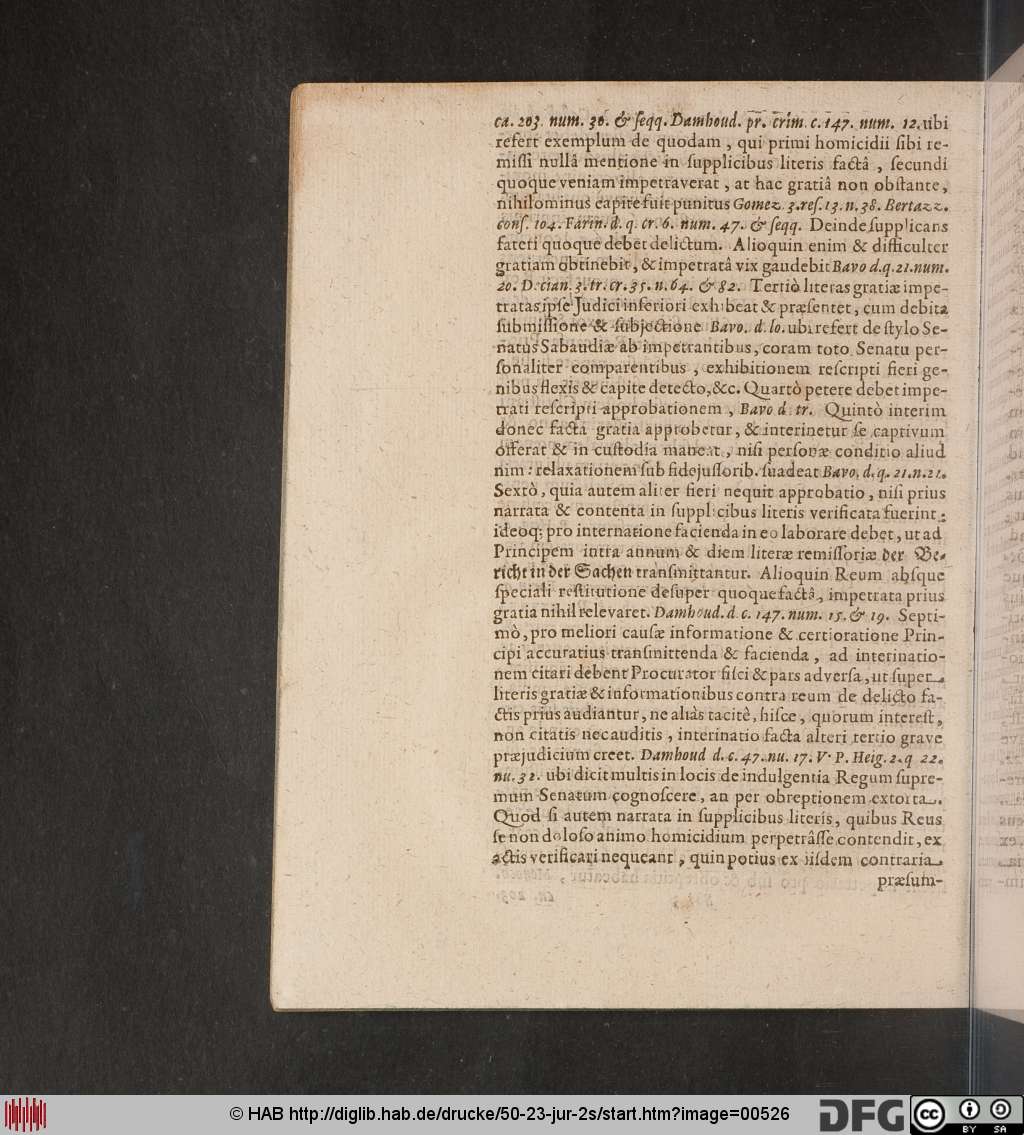 ca. 203. num. 36. & ſeqq. Damhoud. pr. crim. c. 147. num. 12. ubi
refert exemplum de quodam, qui primi homicidii ſibi re-
miſſi nullâ mentione in ſupplicibus literis factâ, ſecundi
quoque veniam impetraverat, at hac gratiâ non obſtante,
nihilominus capite fuit punitus Gomez. 3. reſ. 13. n. 38. Bertazz.
conſ. 104. Farin. d. q. cr. 6. num. 47. & ſeqq. Deinde ſupplicans
fateri quoque debet delictum. Alioquin enim & difficulter
gratiam obtinebit, & impetratâ vix gaudebit Bavo d. q. 21. num.
20. Decian. 3. tr. cr. 35. n. 64. & 82. Tertiò literas gratiæ impe-
tratas ipſe Judici inferiori exhibeat & præſentet, cum debita
ſubmiſſione & ſubjectione Bavo. d. lo. ubi refert de ſtylo Se-
natus Sabaudiæ ab impetrantibus, coram toto Senatu per-
ſonaliter comparentibus, exhibitionem reſcripti fieri ge-
nibus flexis & capite detecto, &c. Quartò petere debet impe-
trati reſcripti approbationem, Bavo d. tr. Quintò interim
donec facta gratia approbetur, & interinetur ſe captivum
offerat & in cuſtodia maneat, niſi perſonæ conditio aliud
nim: relaxationem ſub fidejuſſorib. ſuadeat Bavo. d. q. 21. n. 21.
Sextò, quia autem aliter fieri nequit approbatio, niſi prius
narrata & contenta in ſupplicibus literis verificata fuerint:
ideoq; pro internatione facienda in eo laborare debet, ut ad
Principem intra annum & diem literæ remiſſoriæ der Be-
richt in der Sachen tranſmittantur. Alioquin Reum abſque
ſpeciali reſtitutione deſuper quoque factâ, impetrata prius
gratia nihil relevaret. Damhoud. d. c. 147. num. 15. & 19. Septi-
mò, pro meliori cauſæ informatione & certioratione Prin-
cipi accuratius tranſmittenda & facienda, ad interinatio-
nem citari debent Procurator fiſci & pars adverſa, ut ſuper
literis gratiæ & informationibus contra reum de delicto fa-
ctis prius audiantur, ne aliàs tacitè, hiſce, quorum intereſt,
non citatis nec auditis, interinatio facta alteri tertio grave
præjudicium creet. Damhoud d. c. 47. nu. 17. V. P. Heig. 2. q 22.
nu. 32. ubi dicit multis in locis de indulgentia Regum ſupre-
mum Senatum cognoſcere, an per obreptionem extorta.
Quod ſi autem narrata in ſupplicibus literis, quibus Reus
ſe non doloſo animo homicidium perpetrâſſe contendit, ex
actis verificari nequeant, quin potius ex iiſdem contraria
præſum-
© HAB http://diglib.hab.de/drucke/50-23-jur-2s/start.htm?image=00526
DFG
cc BY SA